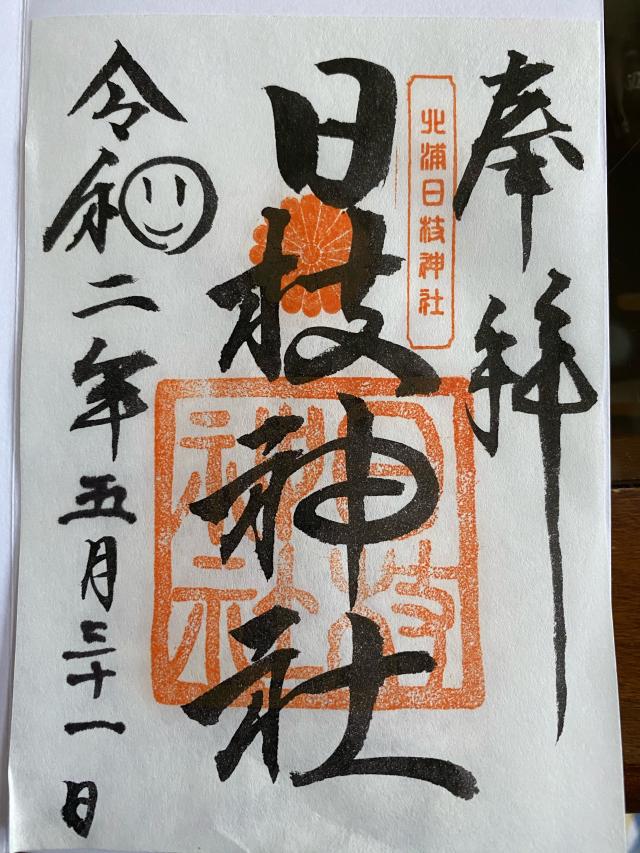 奉拝
北浦日枝神社
日枝神社
日枝神社
令和二年五月三十一日